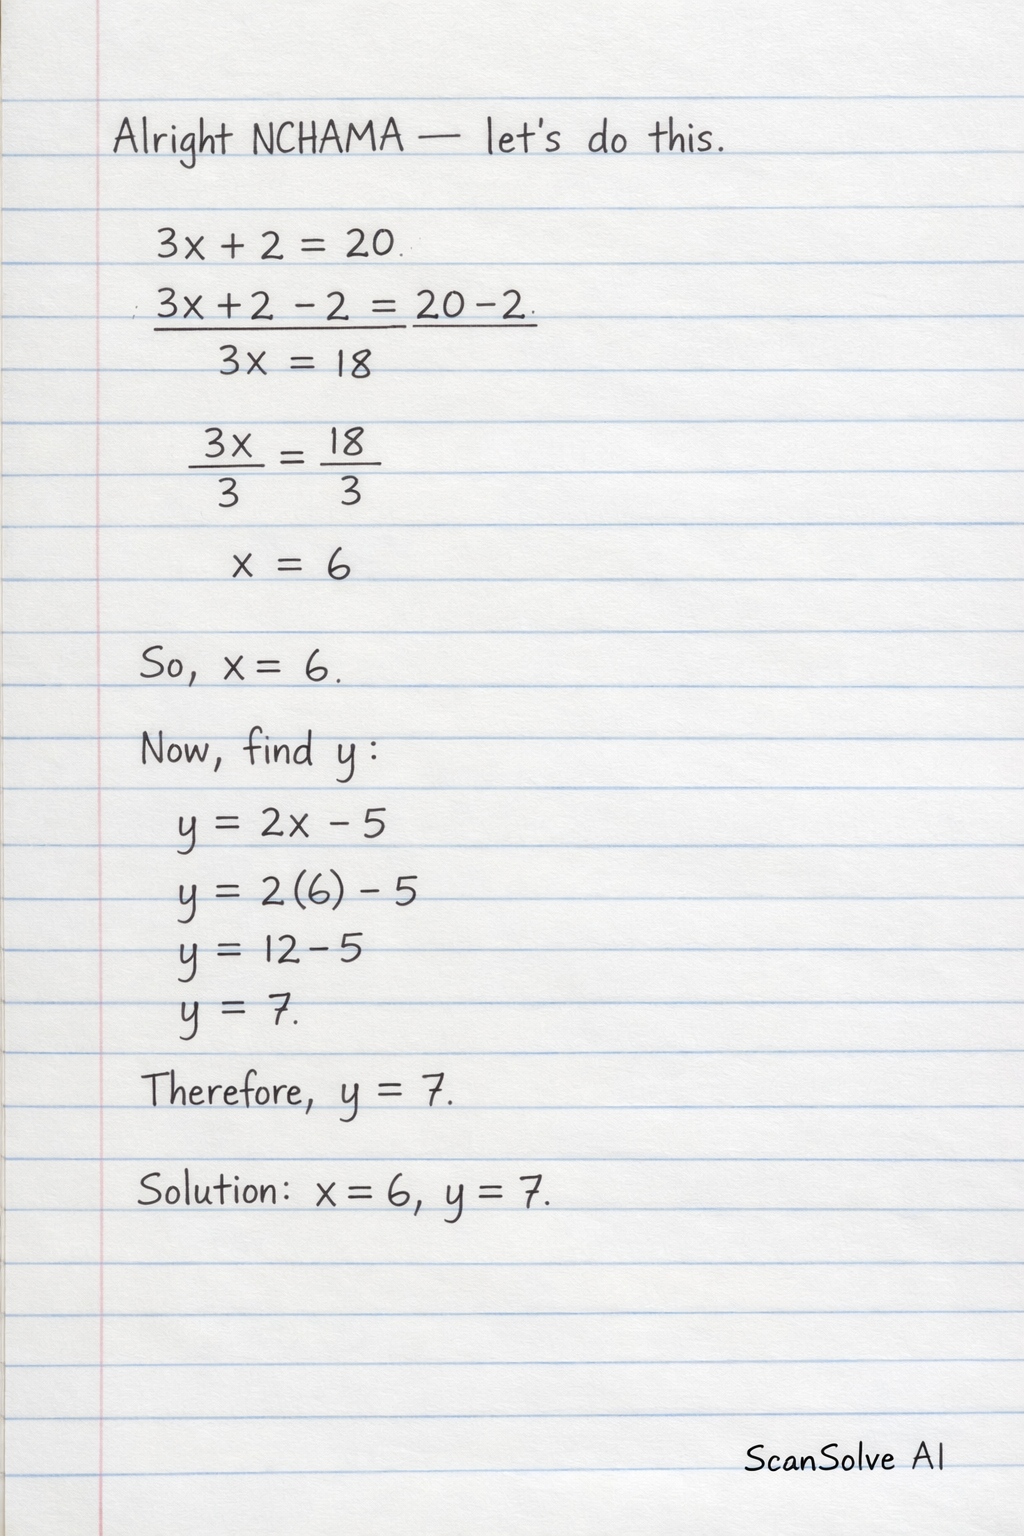 Alright NCHAMA — let's do this.
3x + 2 = 20.
3x + 2 - 2 = 20 - 2.
3x = 18
3x/3 = 18/3
x = 6
So, x = 6.
Now, find y:
y = 2x - 5
y = 2(6) - 5
y = 12 - 5
y = 7.
Therefore, y = 7.
Solution: x = 6, y = 7.
ScanSolve AI